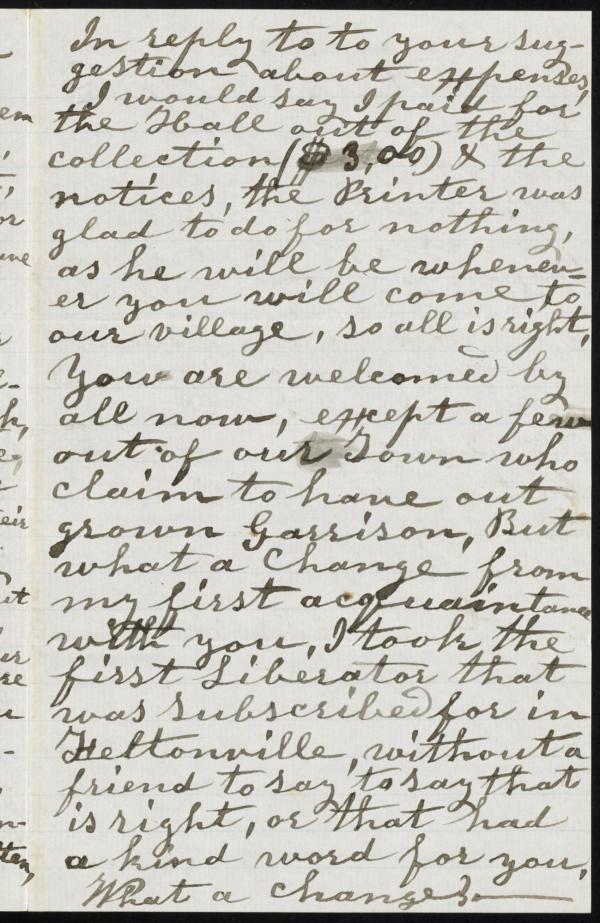 In reply to to your sug-
gestion about expenses,
I would say I paid for
the Hall out of the
collection ($3,00) & the
notices, the Printer was
glad to do for nothing,
as he will be whenev-
er you will come to
our village, so all is right,
You are welcomed by
all now, except a few
out of our Town who
claim to have out
grown Garrison, But
what a change from
my first acquaintance
with you, I took the
first Liberator that
was subscribed for in
Feltonville, without a
friend to say, to say that
is right, or that had
a kind word for you,
What a change!